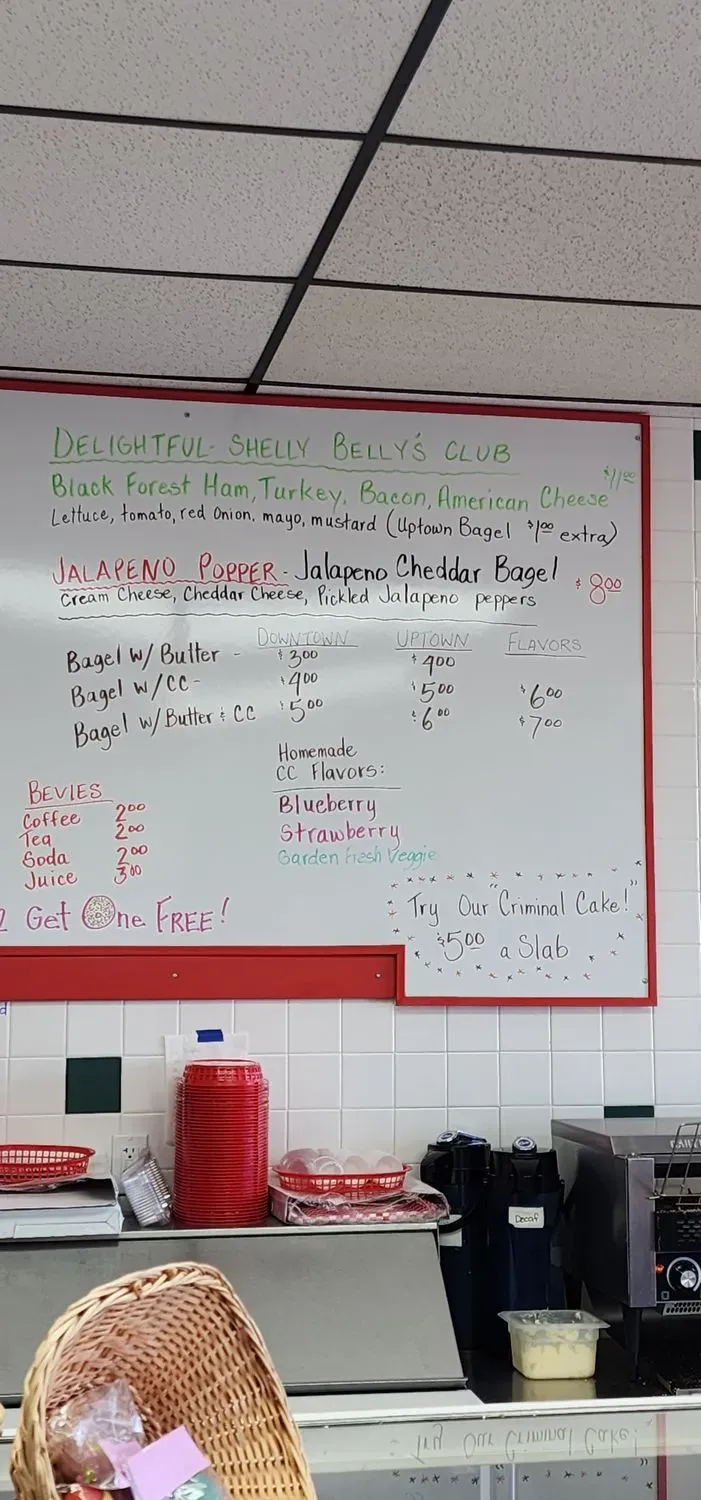 DELIGHTFUL- SHELLY BELLY'S CLUB
Black Forest Ham, Turkey, Bacon, American Cheese $11.00
Lettuce, tomato, red onion, mayo, mustard (Uptown Bagel $1.00 extra)
JALAPENO POPPER - Jalapeno Cheddar Bagel $8.00
Cream Cheese, Cheddar Cheese, Pickled Jalapeno peppers
DOWNTOWN UPTOWN FLAVORS
Bagel w/ Butter - $3.00 $4.00
Bagel w/CC - $4.00 $5.00 $6.00
Bagel w/Butter & CC $5.00 $6.00 $7.00
Homemade
CC Flavors:
Blueberry
Strawberry
Garden Fresh Veggie
BEVIES
Coffee 2.00
Tea 2.00
Soda 2.00
Juice 3.00
2 Get One FREE!
Try Our "Criminal Cake!"
$5.00 a Slab
Decaf
Try Our Criminal Cake!